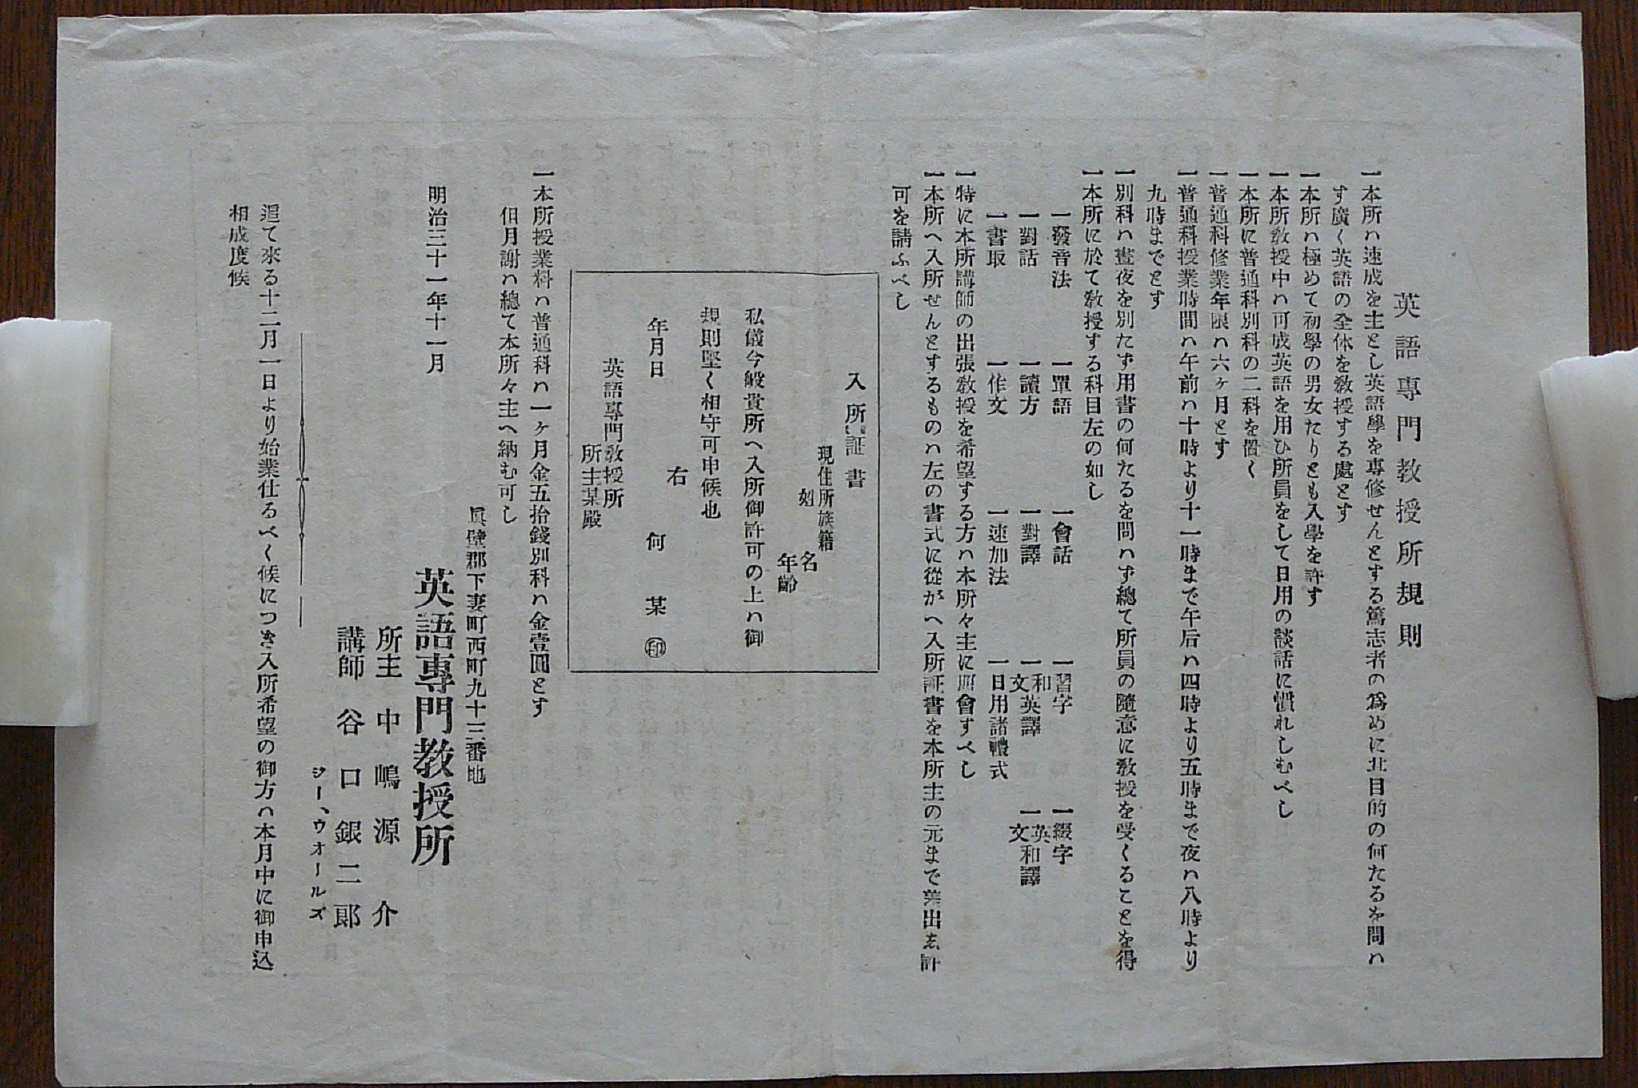 英語專門教授所規則
一本所ハ速成を主とし英語學を專修せんとする篤志者の爲めに其目的の何たるを問ハ
す廣く英語の全体を敎授する處とす
一本所ハ極めて初學の男女たりとも入學を許す
一本所敎授中ハ可成英語を用ひ所員をして日用の談話に慣れしむべし
一本所に普通科別科の二科を置く
一普通科修業年限ハ六ヶ月とす
一普通科授業時間ハ午前ハ十時より十一時まで午后ハ四時より五時まで夜ハ八時より
九時までとす
一別科ハ晝夜を別たず用書の何たるを問ハず總て所員の隨意に敎授を受くることを得
一本所に於て敎授する科目左の如し
一發音法 一單語 一會話 一習字 一綴字
一對話 一讀方 一對譯 一和文英譯 一英文和譯
一書取 一作文 一速加法 一日用諸禮式
一特に本所講師の出張敎授を希望する方ハ本所々主に照會すべし
一本所へ入所せんとするものハ左の書式に從がへ入所証書を本所主の元まで差出ゑ許
可を請ふべし
入所証書
現住所族籍
姓 名
年齡
私儀今般貴所へ入所御許可の上ハ御
規則堅く相守可申候也
右
年月日 何 某 ㊞
英語專門敎授所
所主某殿
一本所授業料ハ普通科ハ一ヶ月金五拾錢別科ハ金壹圓とす
但月謝ハ總て本所々主へ納む可し
眞壁郡下妻町西町九十三番地
明治三十一年十一月 英語專門教授所
所主 中嶋源介
講師 谷口銀二郞
ジー、ウオールズ
追て來る十二月一日より始業仕るべく候につき入所希望の御方ハ本月中に御申込
相成度候